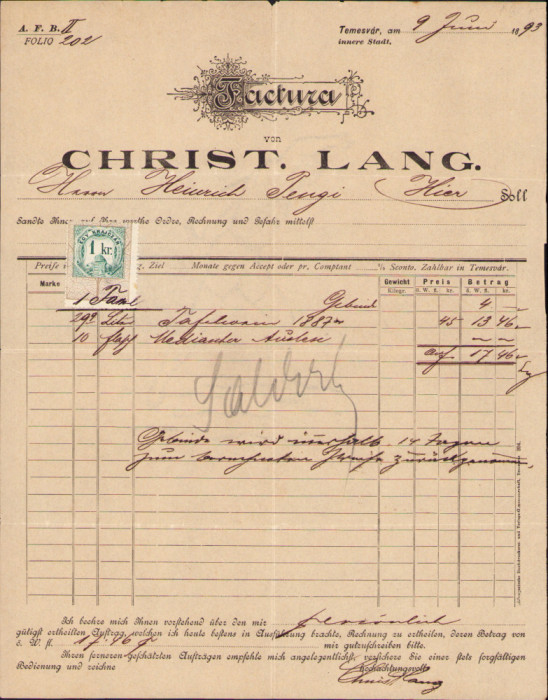 A. F. B. II
FOLIO 202
Temesvár, am 9 Juni 1893
innere Stadt.
Factura
von
CHRIST. LANG.
Herrn Heinrich Hier Soll
Sandte Ihnen auf Ihre werthe Ordre, Rechnung und Gefahr mittelst
1 kr.
Preise Ziel Monate gegen Accept oder pr. Comptant % Sconto. Zahlbar in Temesvár.
Marke Gewicht Preis Betrag
Kilogr. ö. W. fl. kr. ö. W. fl. kr.
1 Fassl Gebind 4 –
Liter Tafelwein 1887er 45 13 46
10 Auslese – –
17 46
Saldirt
Gebinde wird innerhalb 14 Tagen
zum berechneten Preise zurückgenommen.
Ich beehre mich Ihnen vorstehend über den mir persönlich
gütigst ertheilten Auftrag, welchen ich heute bestens in Ausführung brachte, Rechnung zu ertheilen, deren Betrag von
ö. W. fl. 17.46 mir gutzuschreiben bitte.
Ihren ferneren geschätzten Aufträgen empfehle mich angelegentlichst, versichere Sie einer stets sorgfältigen
Bedienung und zeichne Hochachtungsvoll
Christ Lang